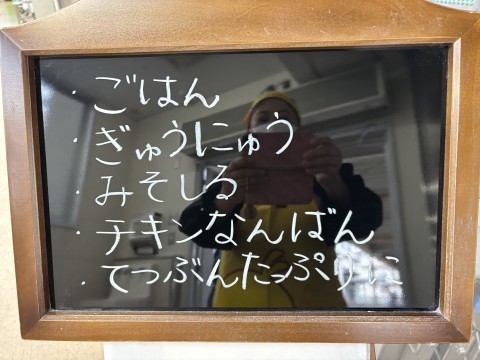 ・ごはん
・ぎゅうにゅう
・みそしる
・チキンなんばん
・てつぶんたっぷりに